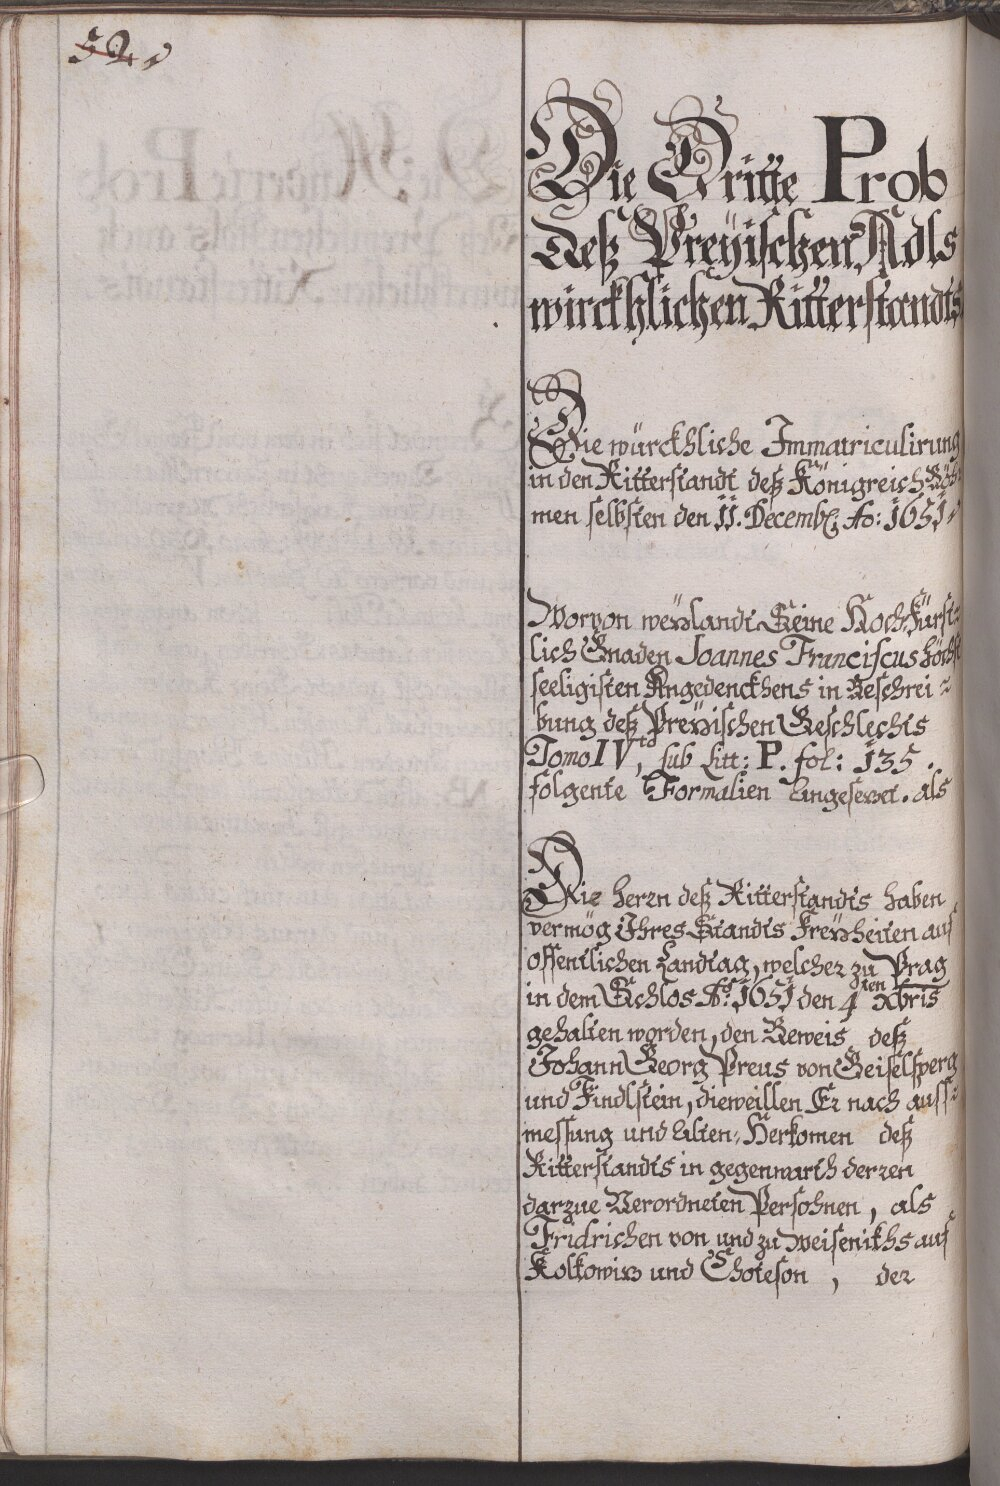 52.
Die Dritte Prob
deß Preyischen Adls
würckhlichen Ritterstandts
Die würckhliche Immatriculirung
in den Ritterstandt deß Königreich Böh=
men selbsten den 11. Decemb: Ao: 1651.
Worvon weyllandt Seine Hochfürst=
lich Gnaden Joannes Franciscus höchst
seeligisten Angedenckhens in Beschrei=
bung deß Preyischen Geschlechts
Tomo IVto, sub Litt: P. fol: 135.
folgente Formalien eingesezet. als
Die herrn deß Ritterstandts haben
vermög Ihres Standts Freyheiten auf
offentlichen Landtag, welcher zu Prag
in dem Schlos Ao: 1651 den 4ten Xbris
gehalten worden, den Beweis deß
Johann Georg Preus von Geiselsperg
und Findlstein, dieweillen Er nach auss=
messung und alten Herkomen deß
Ritterstandts in gegenwarth derren
darzue Verordneten Persohnen, als
Fridrichen von und zu Weisenikhs auf
Kolkowiz und Choteson, der